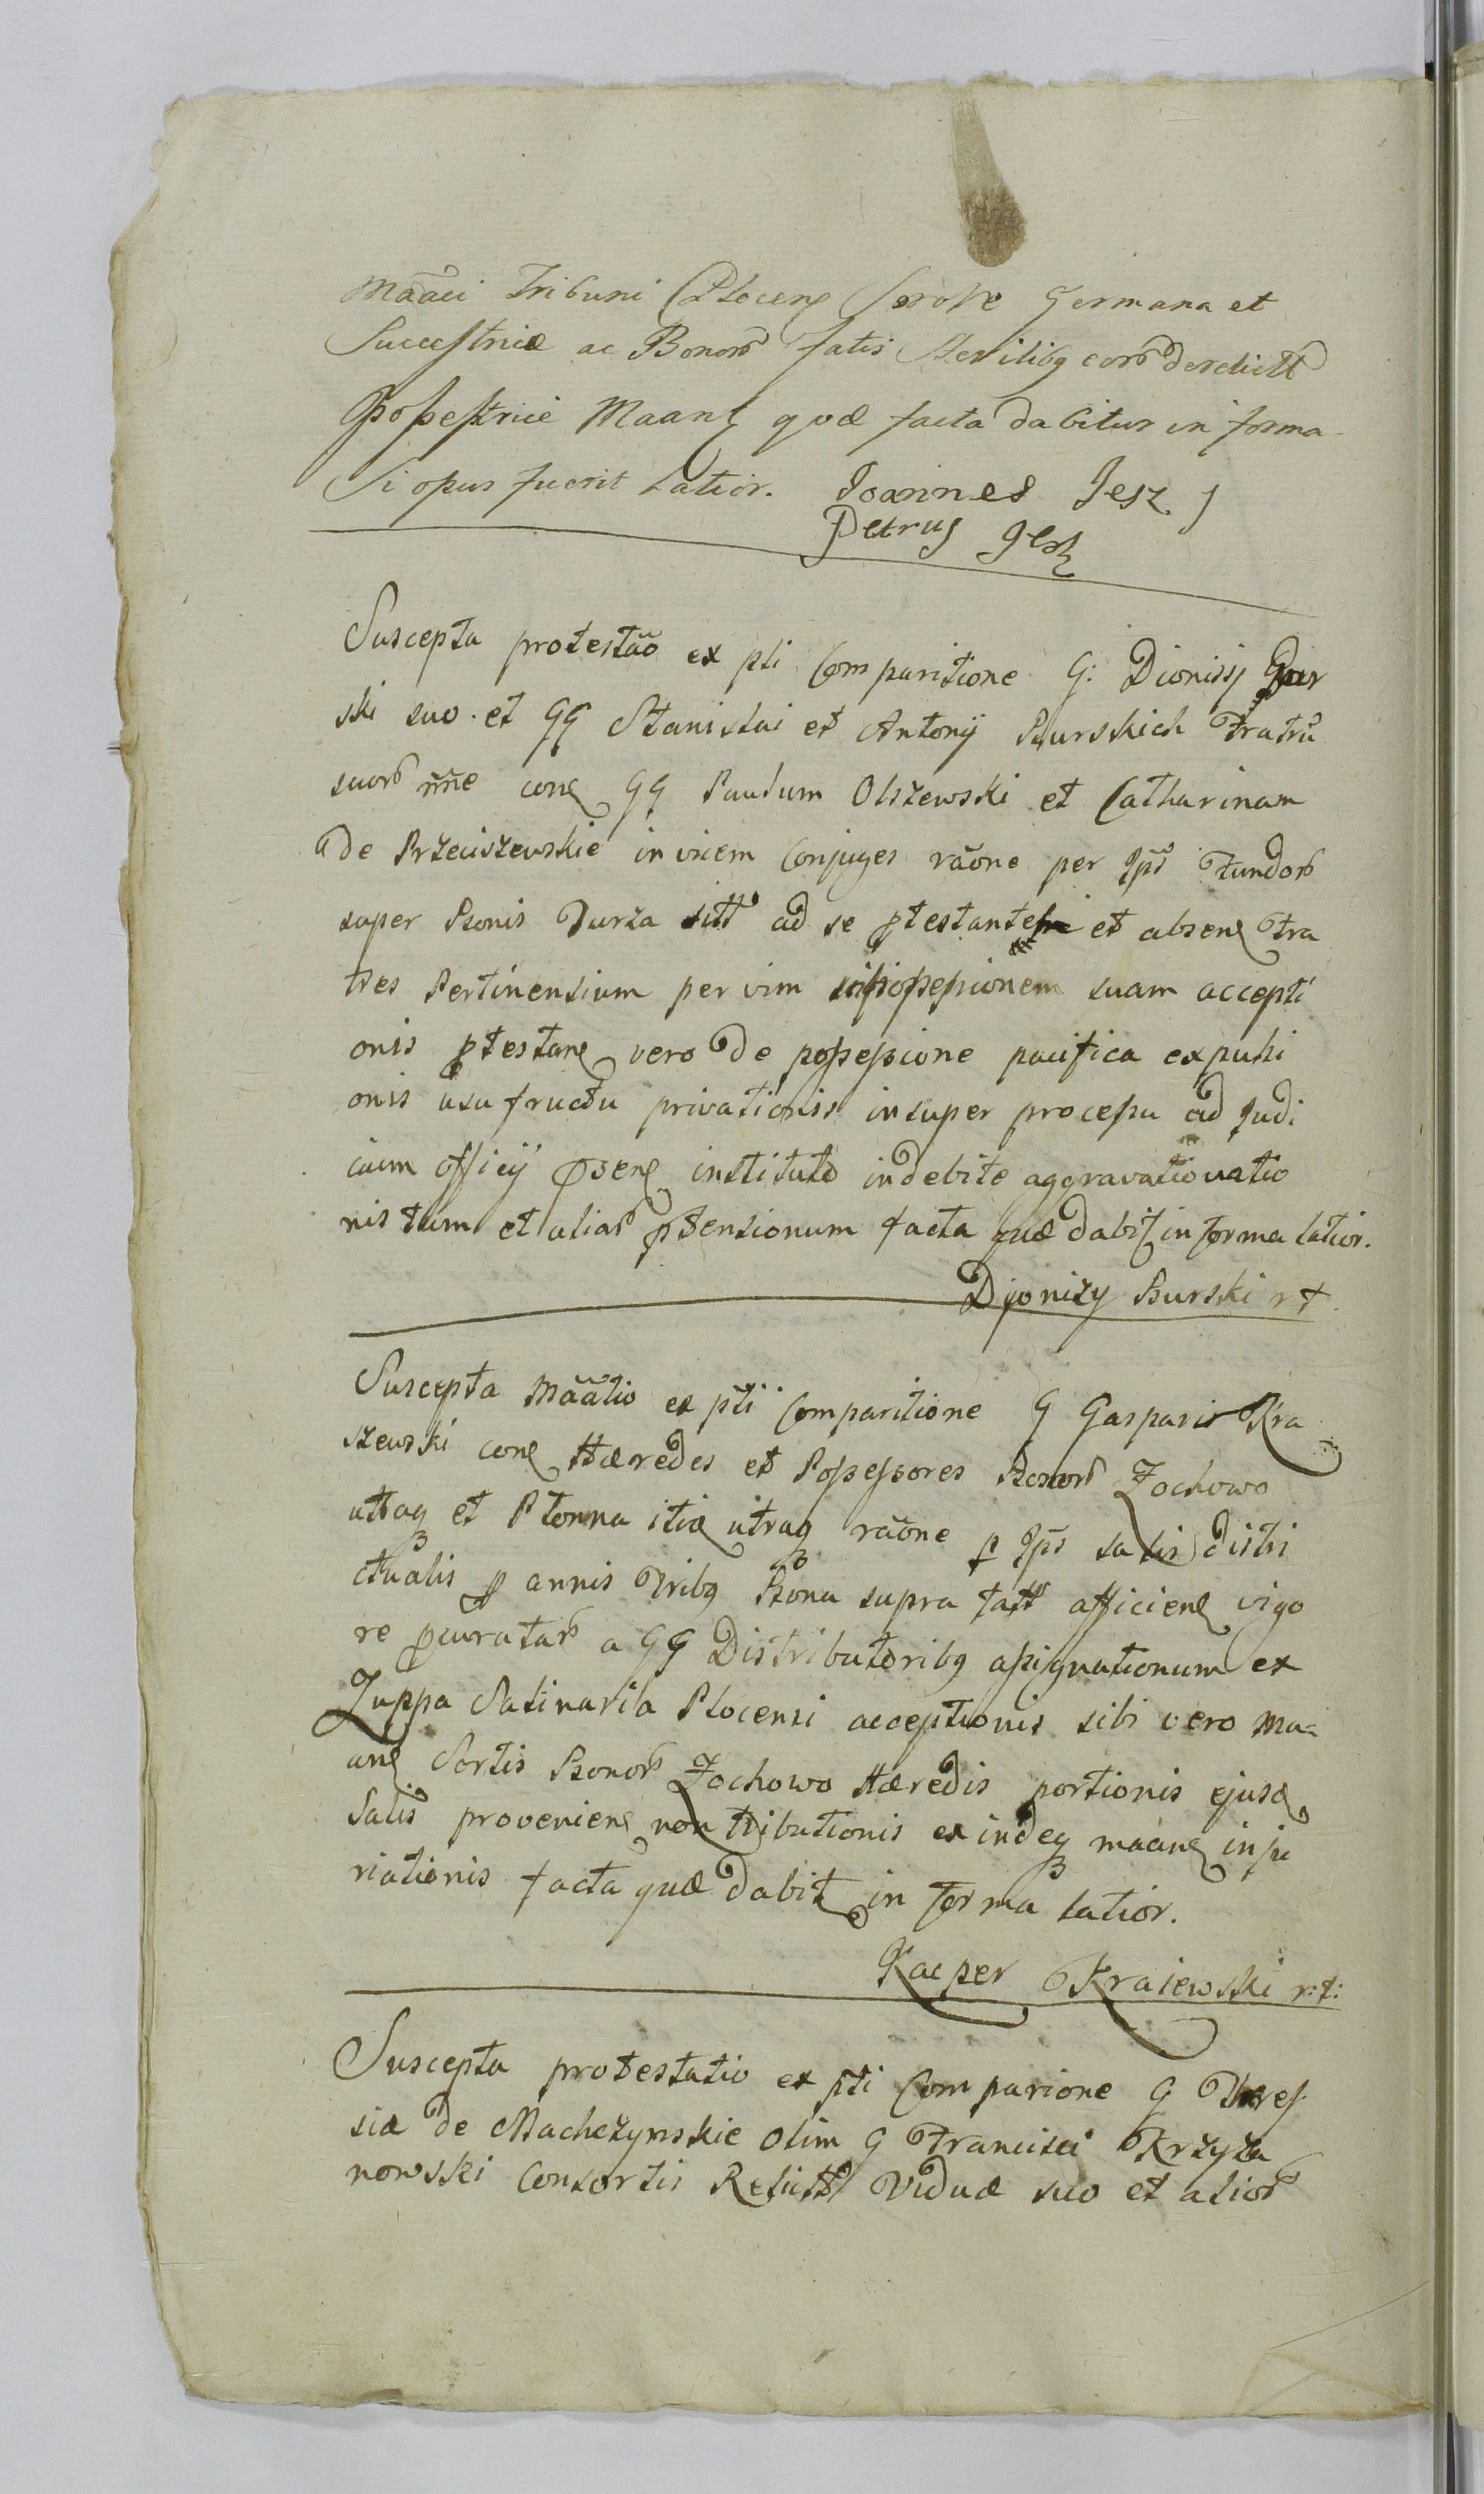 Maaci Tribuni Plocen Sorore Germana et
Successtrice ac Bonorũ fatis sterilibq eorũ derelictt
Possestrice Maant quæ facta dabitur in forma
Si opus fuerit latior. Joannes Jesz
Petrus Jesz
Suscepta protestao ex pti Comparitione G: Dionisij Bur
ski suo et GG Stanislai et Antonij Burskich Fratrũ
suorũ nne con GG Paulum Olszewski et Catharinam
de Przeciszewskie invicem Conjuges raone per Ips Fundorũ
super Bonis Durza sitt ad se ptestantem et absen Fra
tres Pertinensium per vim in possessionem suam accepti
onis ptestan vero de possessione pacifica expulsi
onis usufructu privationis insuper processu ad Judi
cium officij psen instituto indebite aggravatiovatio
nis tum et aliarũ ptensionum facta quæ dabit in forma latior.
Djonizy Burski
Suscepta Maatio ex pti Comparitione G Gasparis Kra
szewski con Hæredes et Possessores Bonorũ Zochowo
utraq et Ptonna itiæ utraq raone p Ips salis distri
ctualis p annis tribq Bona supra fatt afficien vigo
re pcuratarũ a GG Distributoribq assignationum ex
Zuppa Salinaria Plocensi acceptionis sibi vero Ma=
an Sortis Bonorũ Zochowo Hæredis portionis ejusd
Salis provenien non tributionis ex indeq maan inju
riationis facta quæ dabit in forma latior.
Kacper Kraiewski
Suscepta protestatio ex pti Comparione G Theres
siæ de Machczynskie olim G Francisci Krzyza
nowski Consortis Relictt Viduæ suo et aliorũ